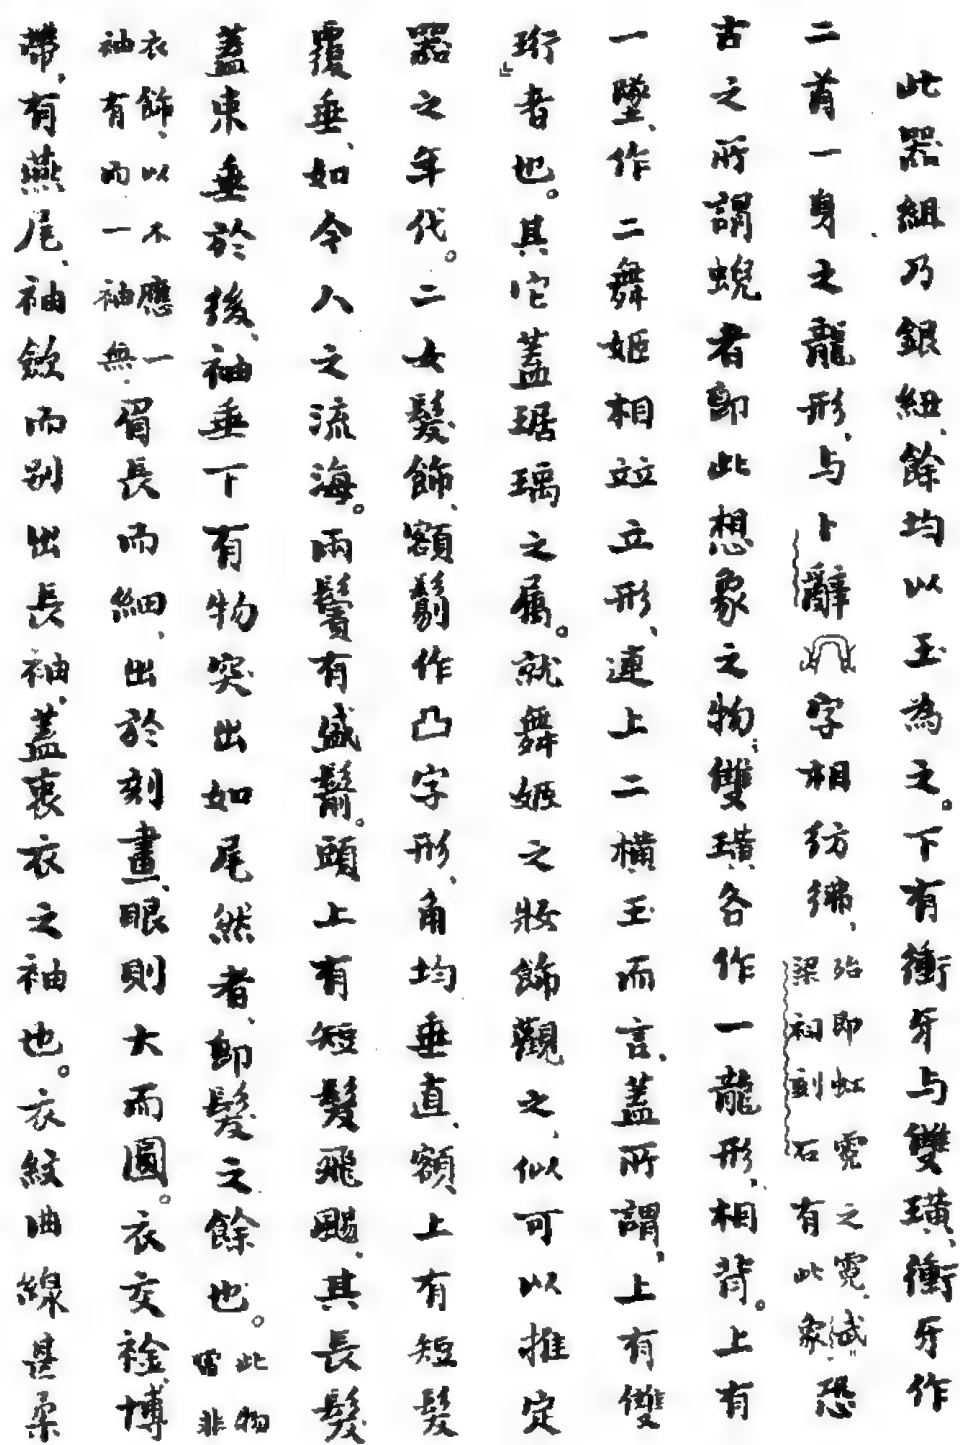 此器組乃銀紐、餘均以玉為之。下有衝牙与雙璜、衝牙作
二首一身之龍形、与卜辭字相彷彿、殆即虹霓之霓、武梁祠刻石有此象恐
古之所謂蜺者即此想象之物；雙璜各作一龍形、相背。上有
一墜、作二舞姬相竝立形、連上二橫玉而言、蓋所謂、上有雙
珩者也。其它蓋琚瑀之屬。就舞姬之妝飾觀之、似可以推定
器之年代。二女髮飾、額鬋作凸字形、角均垂直、額上有短髮
覆垂、如今人之流海。兩鬢有盛鬋。頭上有短髮飛颺、其長髮
蓋束垂於後、袖垂下有物突出如尾然者、即髮之餘也。此物當非
衣飾、以不應一袖有而一袖無。眉長而細、出於刻畫、眼則大而圓。衣交襝、博
帶、有燕尾、袖斂而別出長袖、蓋衷衣之袖也。衣紋曲線甚柔